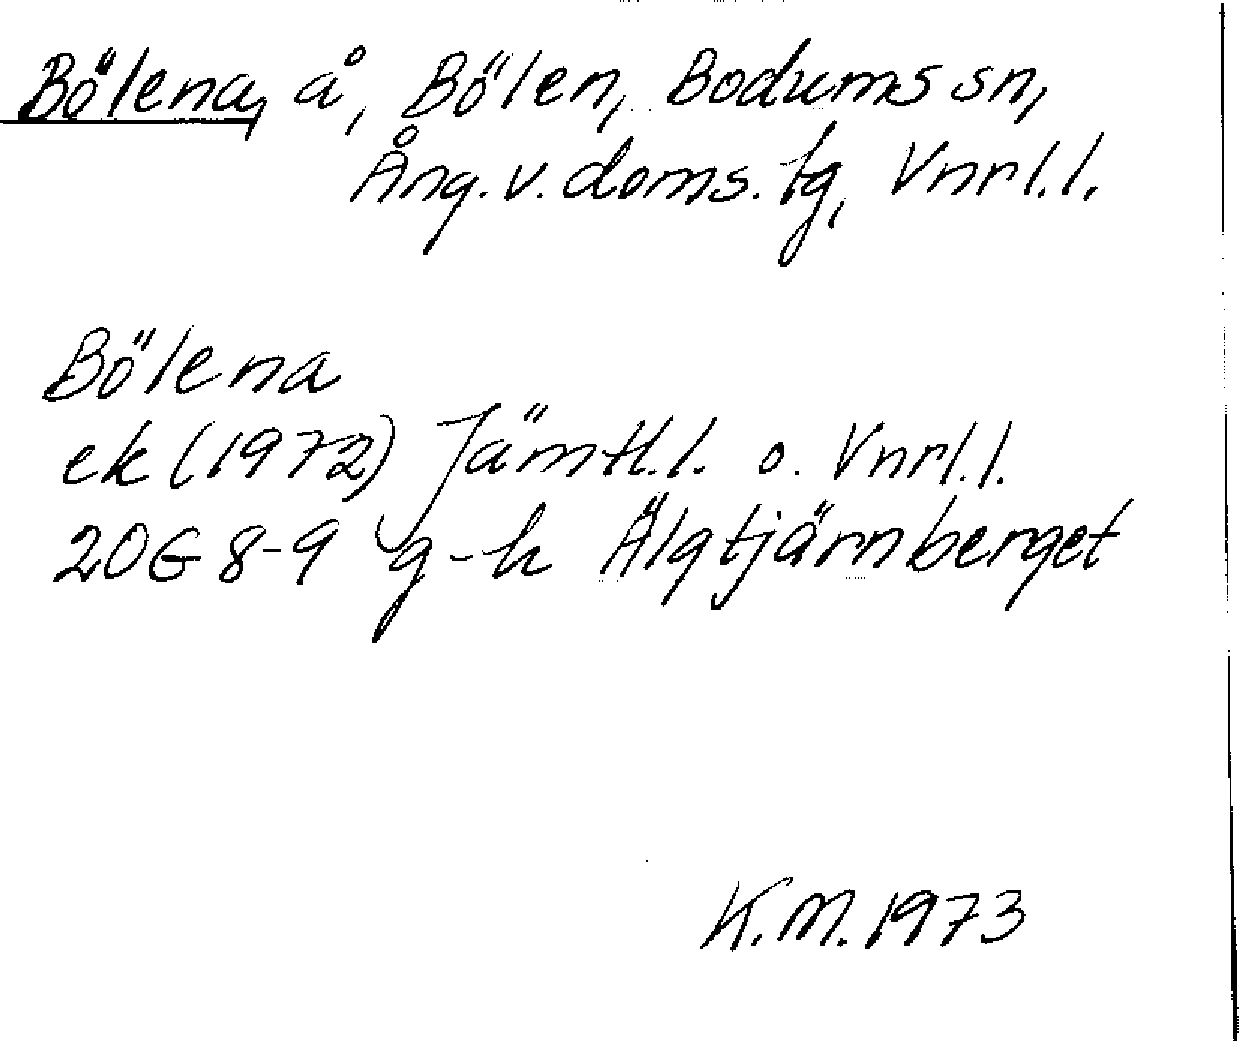 Bölena, å, Bölen, Bodums sn,
Ång. v. doms. tg, Vnrl. l.
Bölena
ek (1972) Jämtl. l. o. Vnrl. l.
20G 8-9 g-h Älgtjärnberget
K.M. 1973